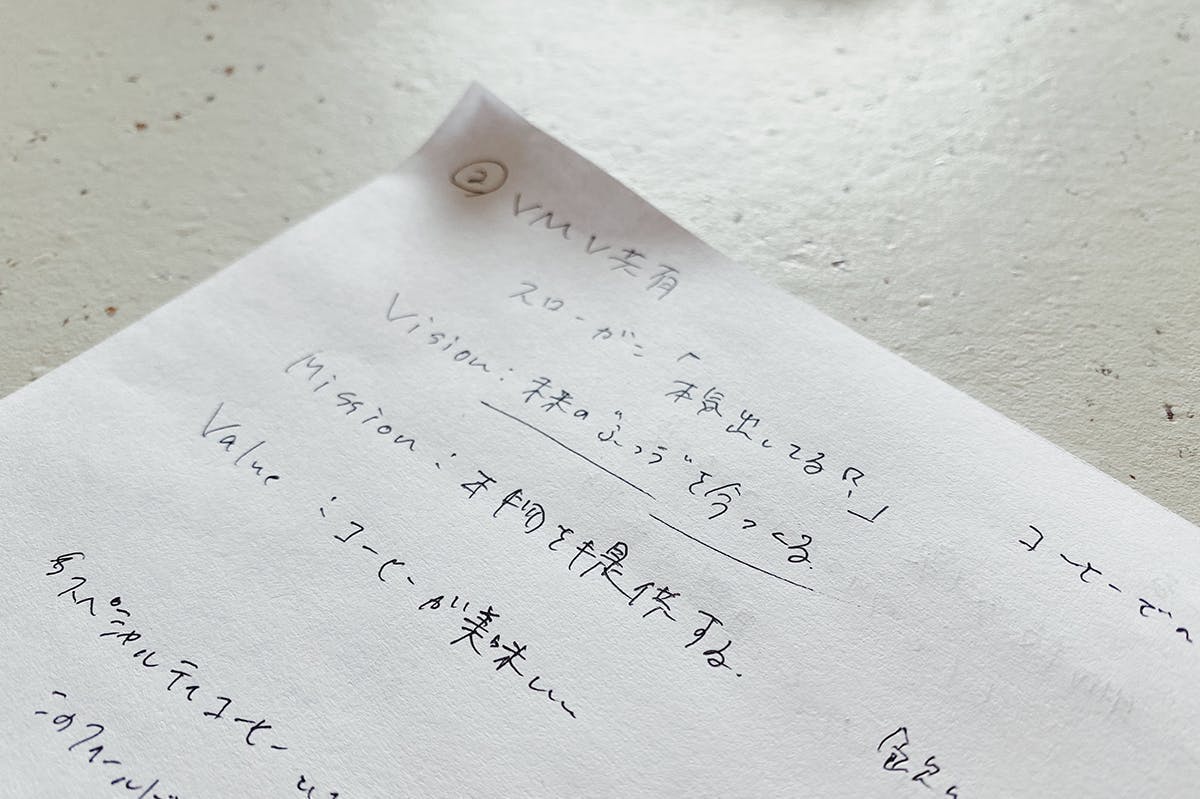 ② VMV共有
スローガン「本気出してる?」
Vision:未来の"ふつう"を今つくる。
Mission:本物を提供する。
Value:コーヒーが美味しい
スペシャルティコーヒー
このフィールド
コーヒーでの
飲